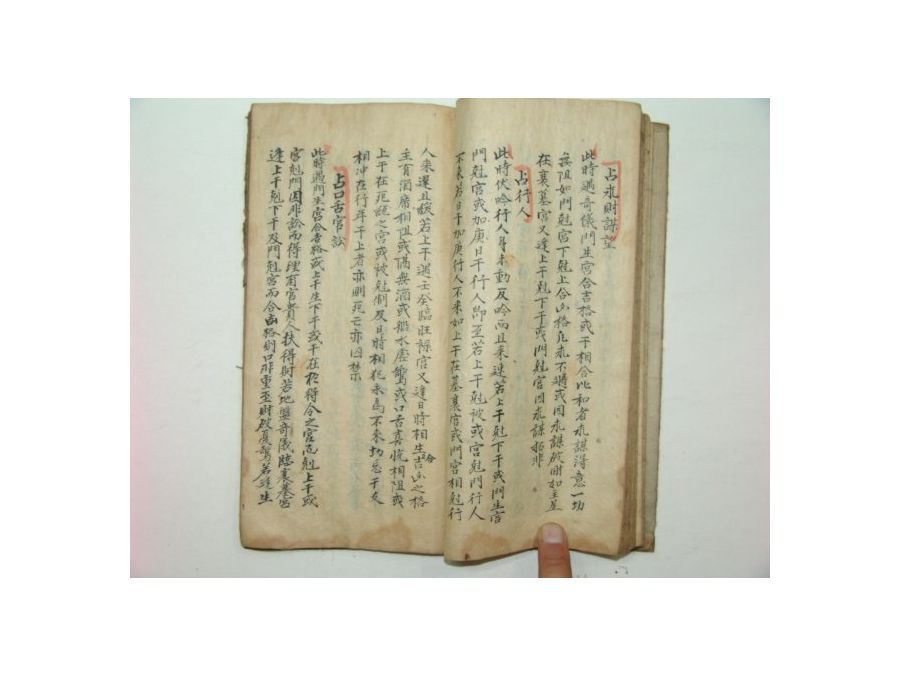 占求財謀望
此時遇奇儀門生宮合吉格或干相合比和者求謀得意一切
無阻如門剋宮下剋上合凶格凡求不遂或因求謀破財如主星
在衰墓宮又逢上干剋下干或門剋宮因求謀招非
占行人
此時伏吟行人身未動反吟而且來速若上干剋下干或門生宮
門剋宮或加庚日干行人即至若上干剋被或宮剋門行人
不來若日干加庚行人不來如上干在墓衰宮或門宮相剋行
人來遲且緩若上干遇壬癸臨旺祿宮又逢日時相生合吉凶之格
主有酒席相阻或遇無酒或船水虛驚或口舌真恍相阻或
上干在死絕之宮或被剋制及日時相犯來馬不來切忌干支
相冲在行年干上者亦則死亡亦囚禁
占口舌官訟
此時遇門生宮合吉格或上干生下干或干在於得令之宮高剋上干或
宮剋門因非訟而得理有官貴人扶得財若地盤奇儀臨衰墓宮
逢上干剋下干及門剋宮而合凶格則口非重至財破憂驚若逢生